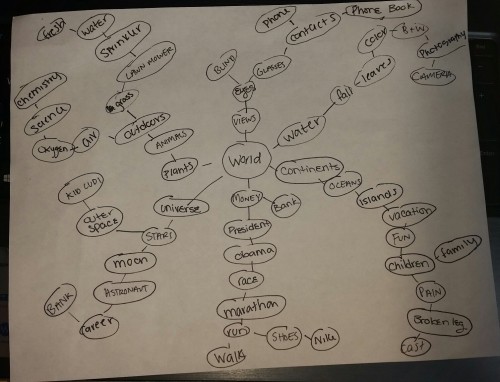 fresh
water
sprinkler
LAWN MOWER
grass
outdoors
ANIMALS
plants
air
oxygen
science
chemistry
phone
contacts
Phone Book
GLASSES
BLIND
Eyes
VIEWS
World
water
fall
leaves
color
B+W
PHOTOGRAPHY
CAMERA
continents
OCEANS
islands
vacation
FUN
children
family
PAIN
Broken leg
cast
MONEY
Bank
President
obama
race
marathon
run
SHOES
Nike
walk
universe
STARS
outer space
KID CUDI
moon
ASTRONAUT
career
BANK